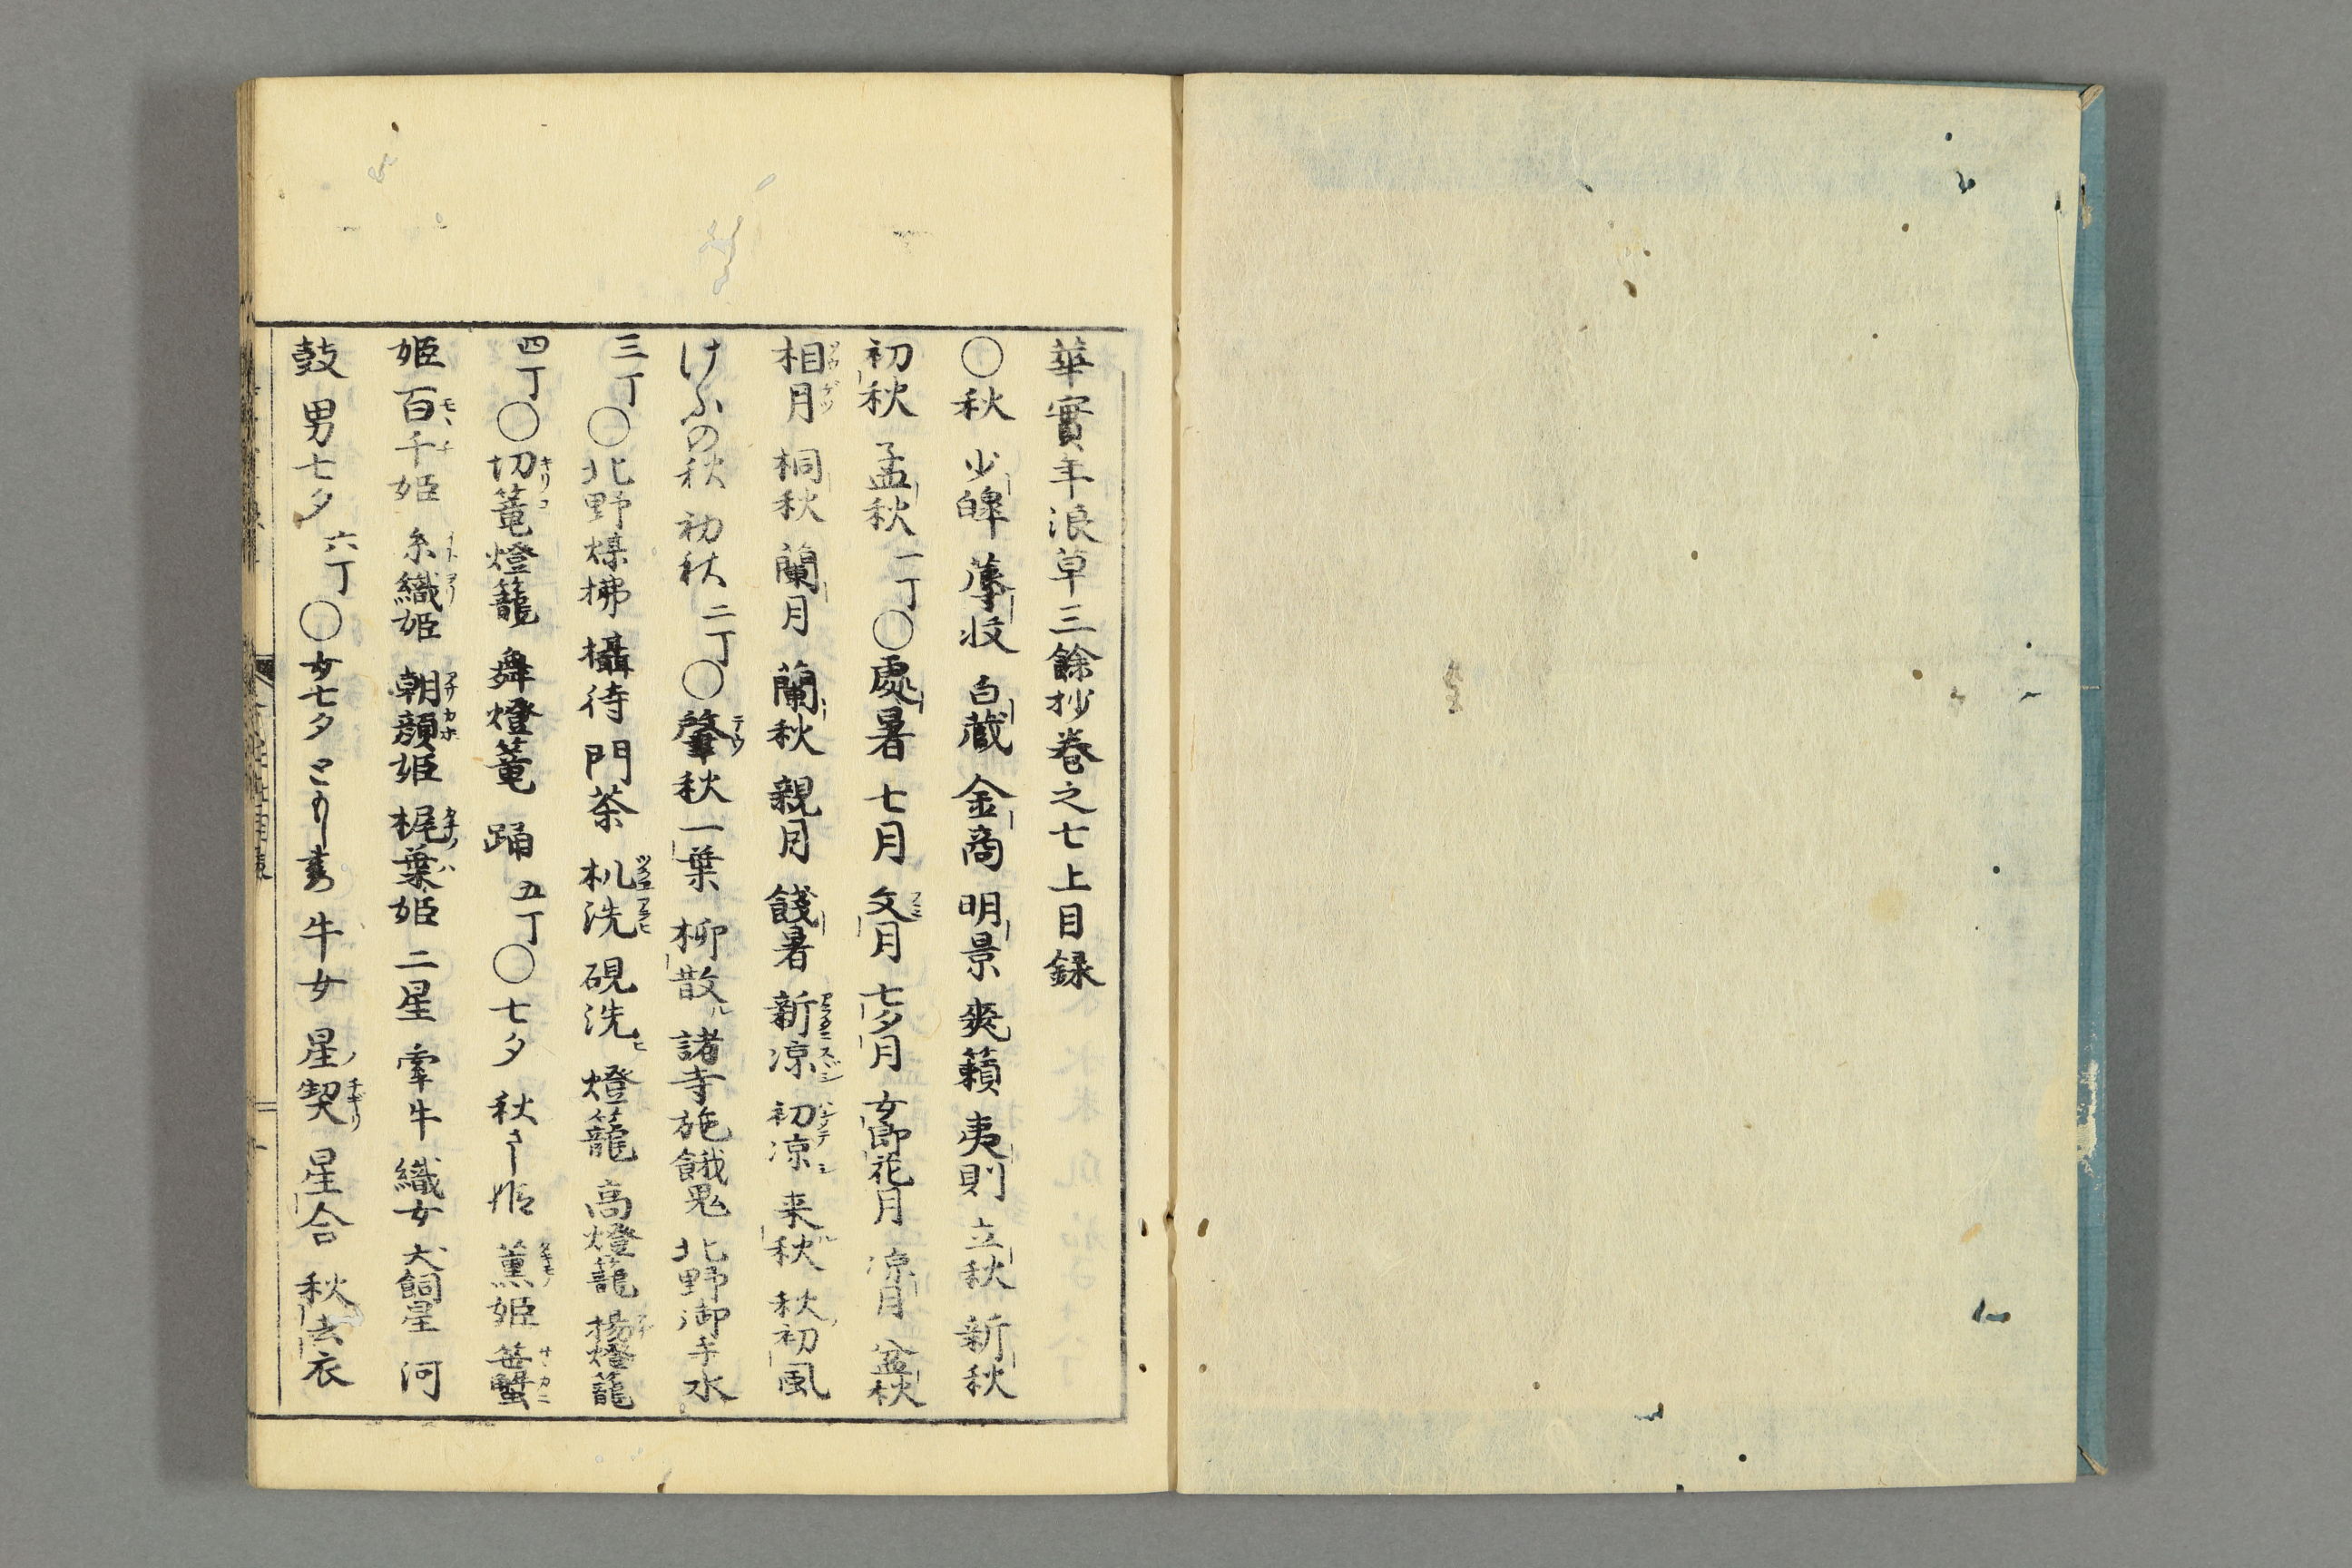 華實年浪草三餘抄巻之七上目録
〇秋 少皡 蓐收 白蔵 金商 明景 爽籟 夷則 立秋 新秋
初秋 孟秋 一丁〇處暑 七月 文月 七夕月 女郎花月 涼月 盆秋
相月 桐秋 蘭月 蘭秋 親月 餞暑 新涼 初涼 来ル秋 秋ノ初風
けふの秋 初秋 二丁〇肇秋 一葉 柳散ル 諸寺施餓鬼 北野御手水
三丁〇北野煤拂 攝待 門茶 机洗 硯洗ヒ 燈籠 高燈籠 揚燈籠
四丁〇切篭燈籠 舞燈篭 踊 五丁〇七夕 秋さり姫 薫姫 笹蟹
姫 百千姫 糸織姫 朝顔姫 梶葉姫 二星 牽牛 織女 犬飼星 河
鼓 男七夕 六丁〇女七夕 牛女 星ノ契 星合 秋去衣